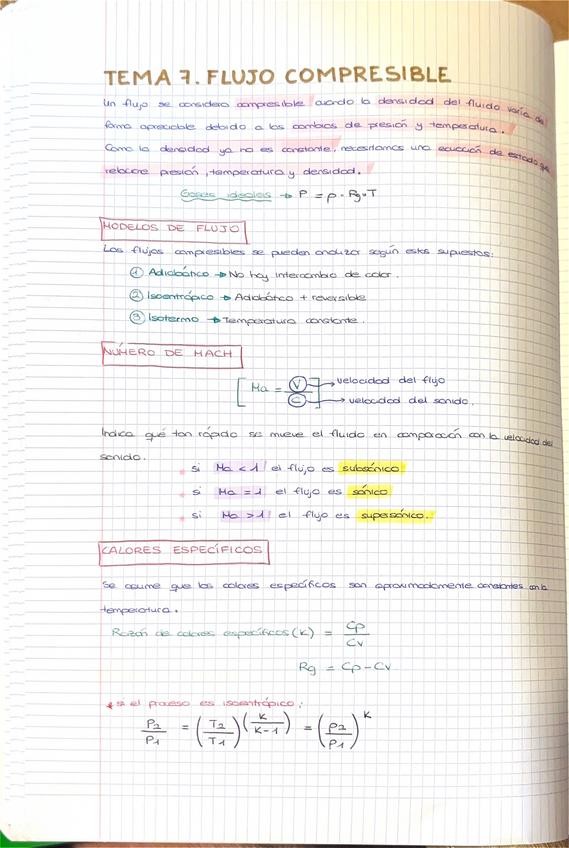 TEMA 7. FLUJO COMPRESIBLE
Un flujo se considera compresible cuando la densidad del fluido varía de
forma apreciable debido a los cambios de presión y temperatura.
Como la densidad ya no es constante, necesitamos una ecuación de estado que
relacione presión, temperatura y densidad.
Gases ideales → P = ρ · Rg · T
MODELOS DE FLUJO
Los flujos compresibles se pueden analizar según estos supuestos:
① Adiabático → No hay intercambio de calor.
② Isoentrópico → Adiabático + reversible
③ Isotermo → Temperatura constante.
NÚMERO DE MACH
[Ma = V/C] V → velocidad del flujo
C → velocidad del sonido.
Indica qué tan rápido se mueve el fluido en comparación con la velocidad del
sonido.
* si Ma < 1 el flujo es subsónico
* si Ma = 1 el flujo es sónico
* si Ma > 1 el flujo es supersónico.
CALORES ESPECÍFICOS
Se asume que los calores específicos son aproximadamente constantes con la
temperatura.
Razón de calores específicos (K) = Cp/Cv
Rg = Cp - Cv
* si el proceso es isoentrópico:
P2/P1 = (T2/T1)^(K/K-1) = (ρ2/ρ1)^K